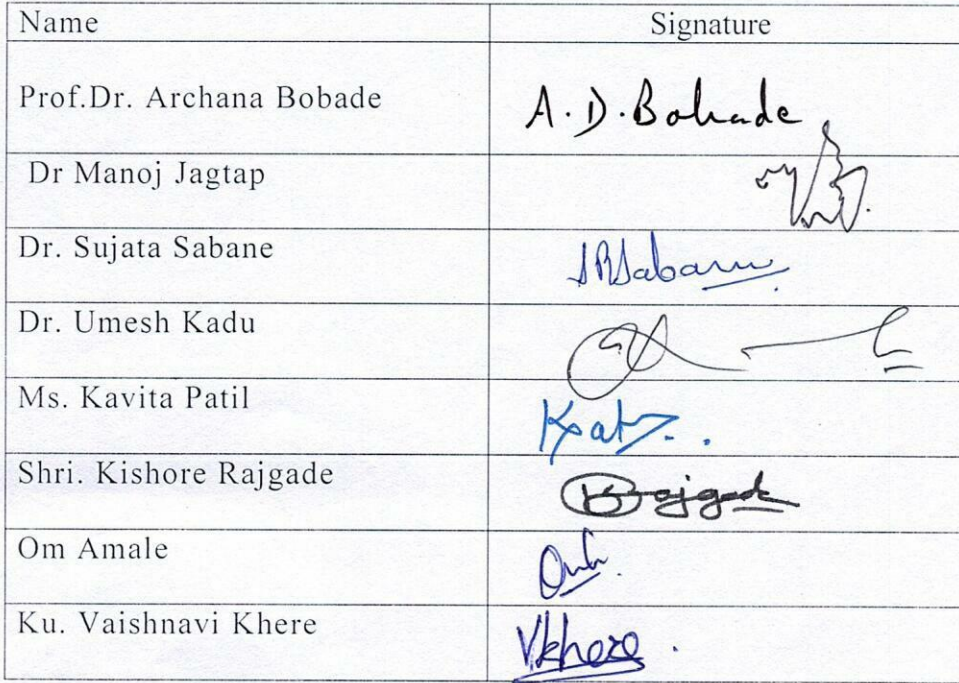 Name Signature
Prof.Dr. Archana Bobade A.D.Bobade
Dr Manoj Jagtap
Dr. Sujata Sabane SRSabane
Dr. Umesh Kadu
Ms. Kavita Patil
Shri. Kishore Rajgade Rajgade
Om Amale
Ku. Vaishnavi Khere V.khere